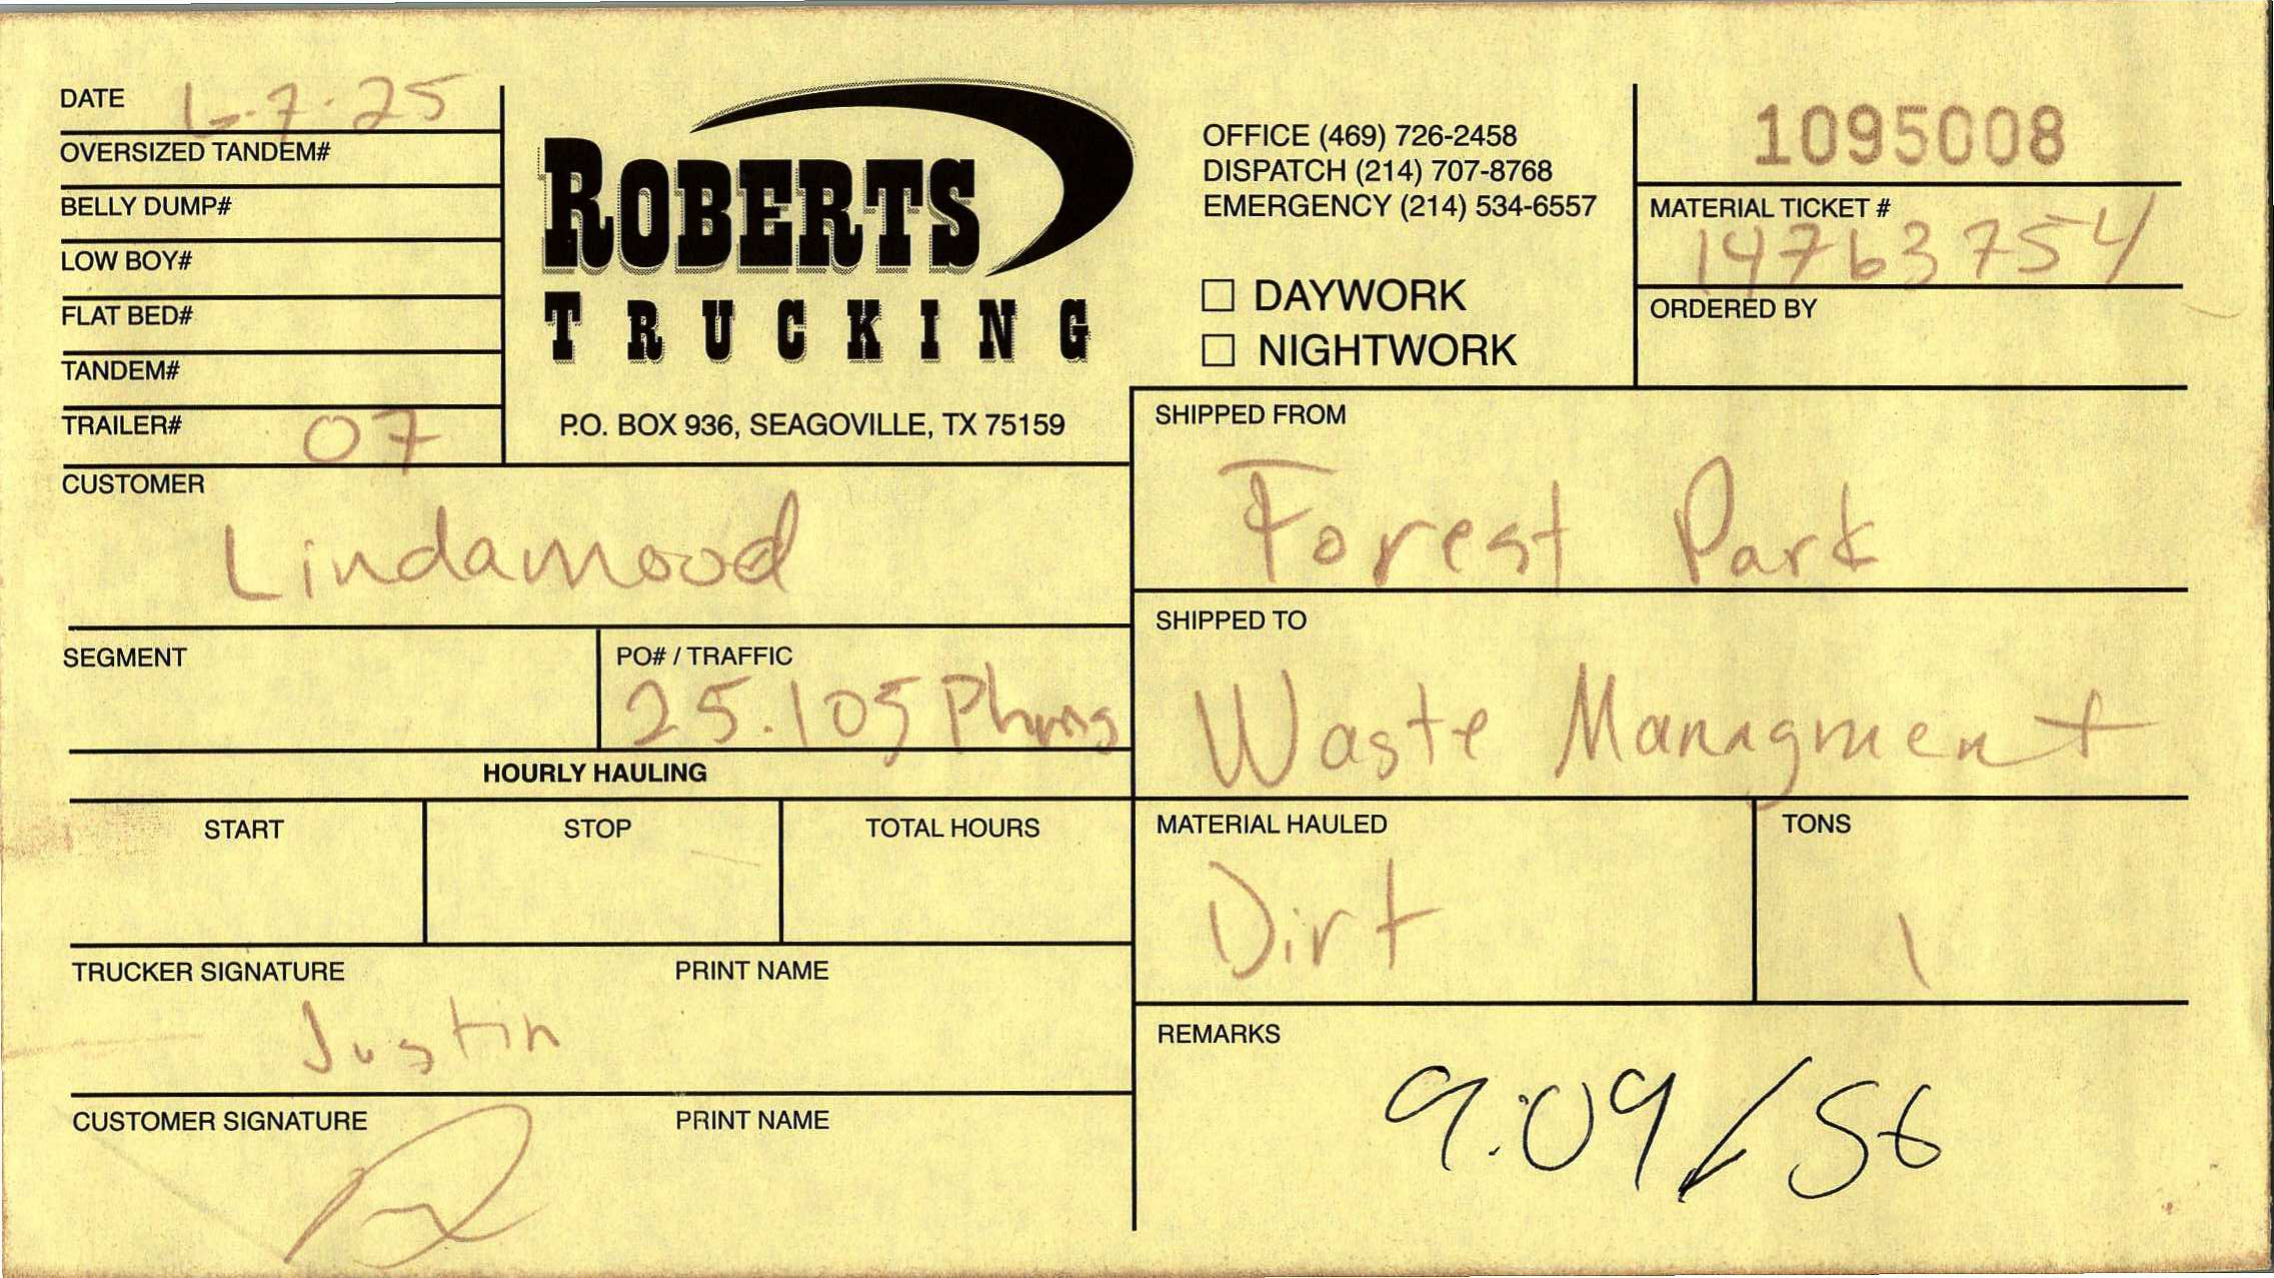 DATE 6-7-25
OVERSIZED TANDEM#
BELLY DUMP#
LOW BOY#
FLAT BED#
TANDEM#
TRAILER# 07
ROBERTS
TRUCKING
P.O. BOX 936, SEAGOVILLE, TX 75159
OFFICE (469) 726-2458
DISPATCH (214) 707-8768
EMERGENCY (214) 534-6557
☐ DAYWORK
☐ NIGHTWORK
1095008
MATERIAL TICKET #
14763754
ORDERED BY
CUSTOMER
Lindamood
SHIPPED FROM
Forest Park
SEGMENT
PO# / TRAFFIC
25.105
SHIPPED TO
Waste Managment
HOURLY HAULING
START
STOP
TOTAL HOURS
MATERIAL HAULED
Dirt
TONS
1
TRUCKER SIGNATURE
PRINT NAME
Justin
CUSTOMER SIGNATURE
PRINT NAME
REMARKS
9:09/56